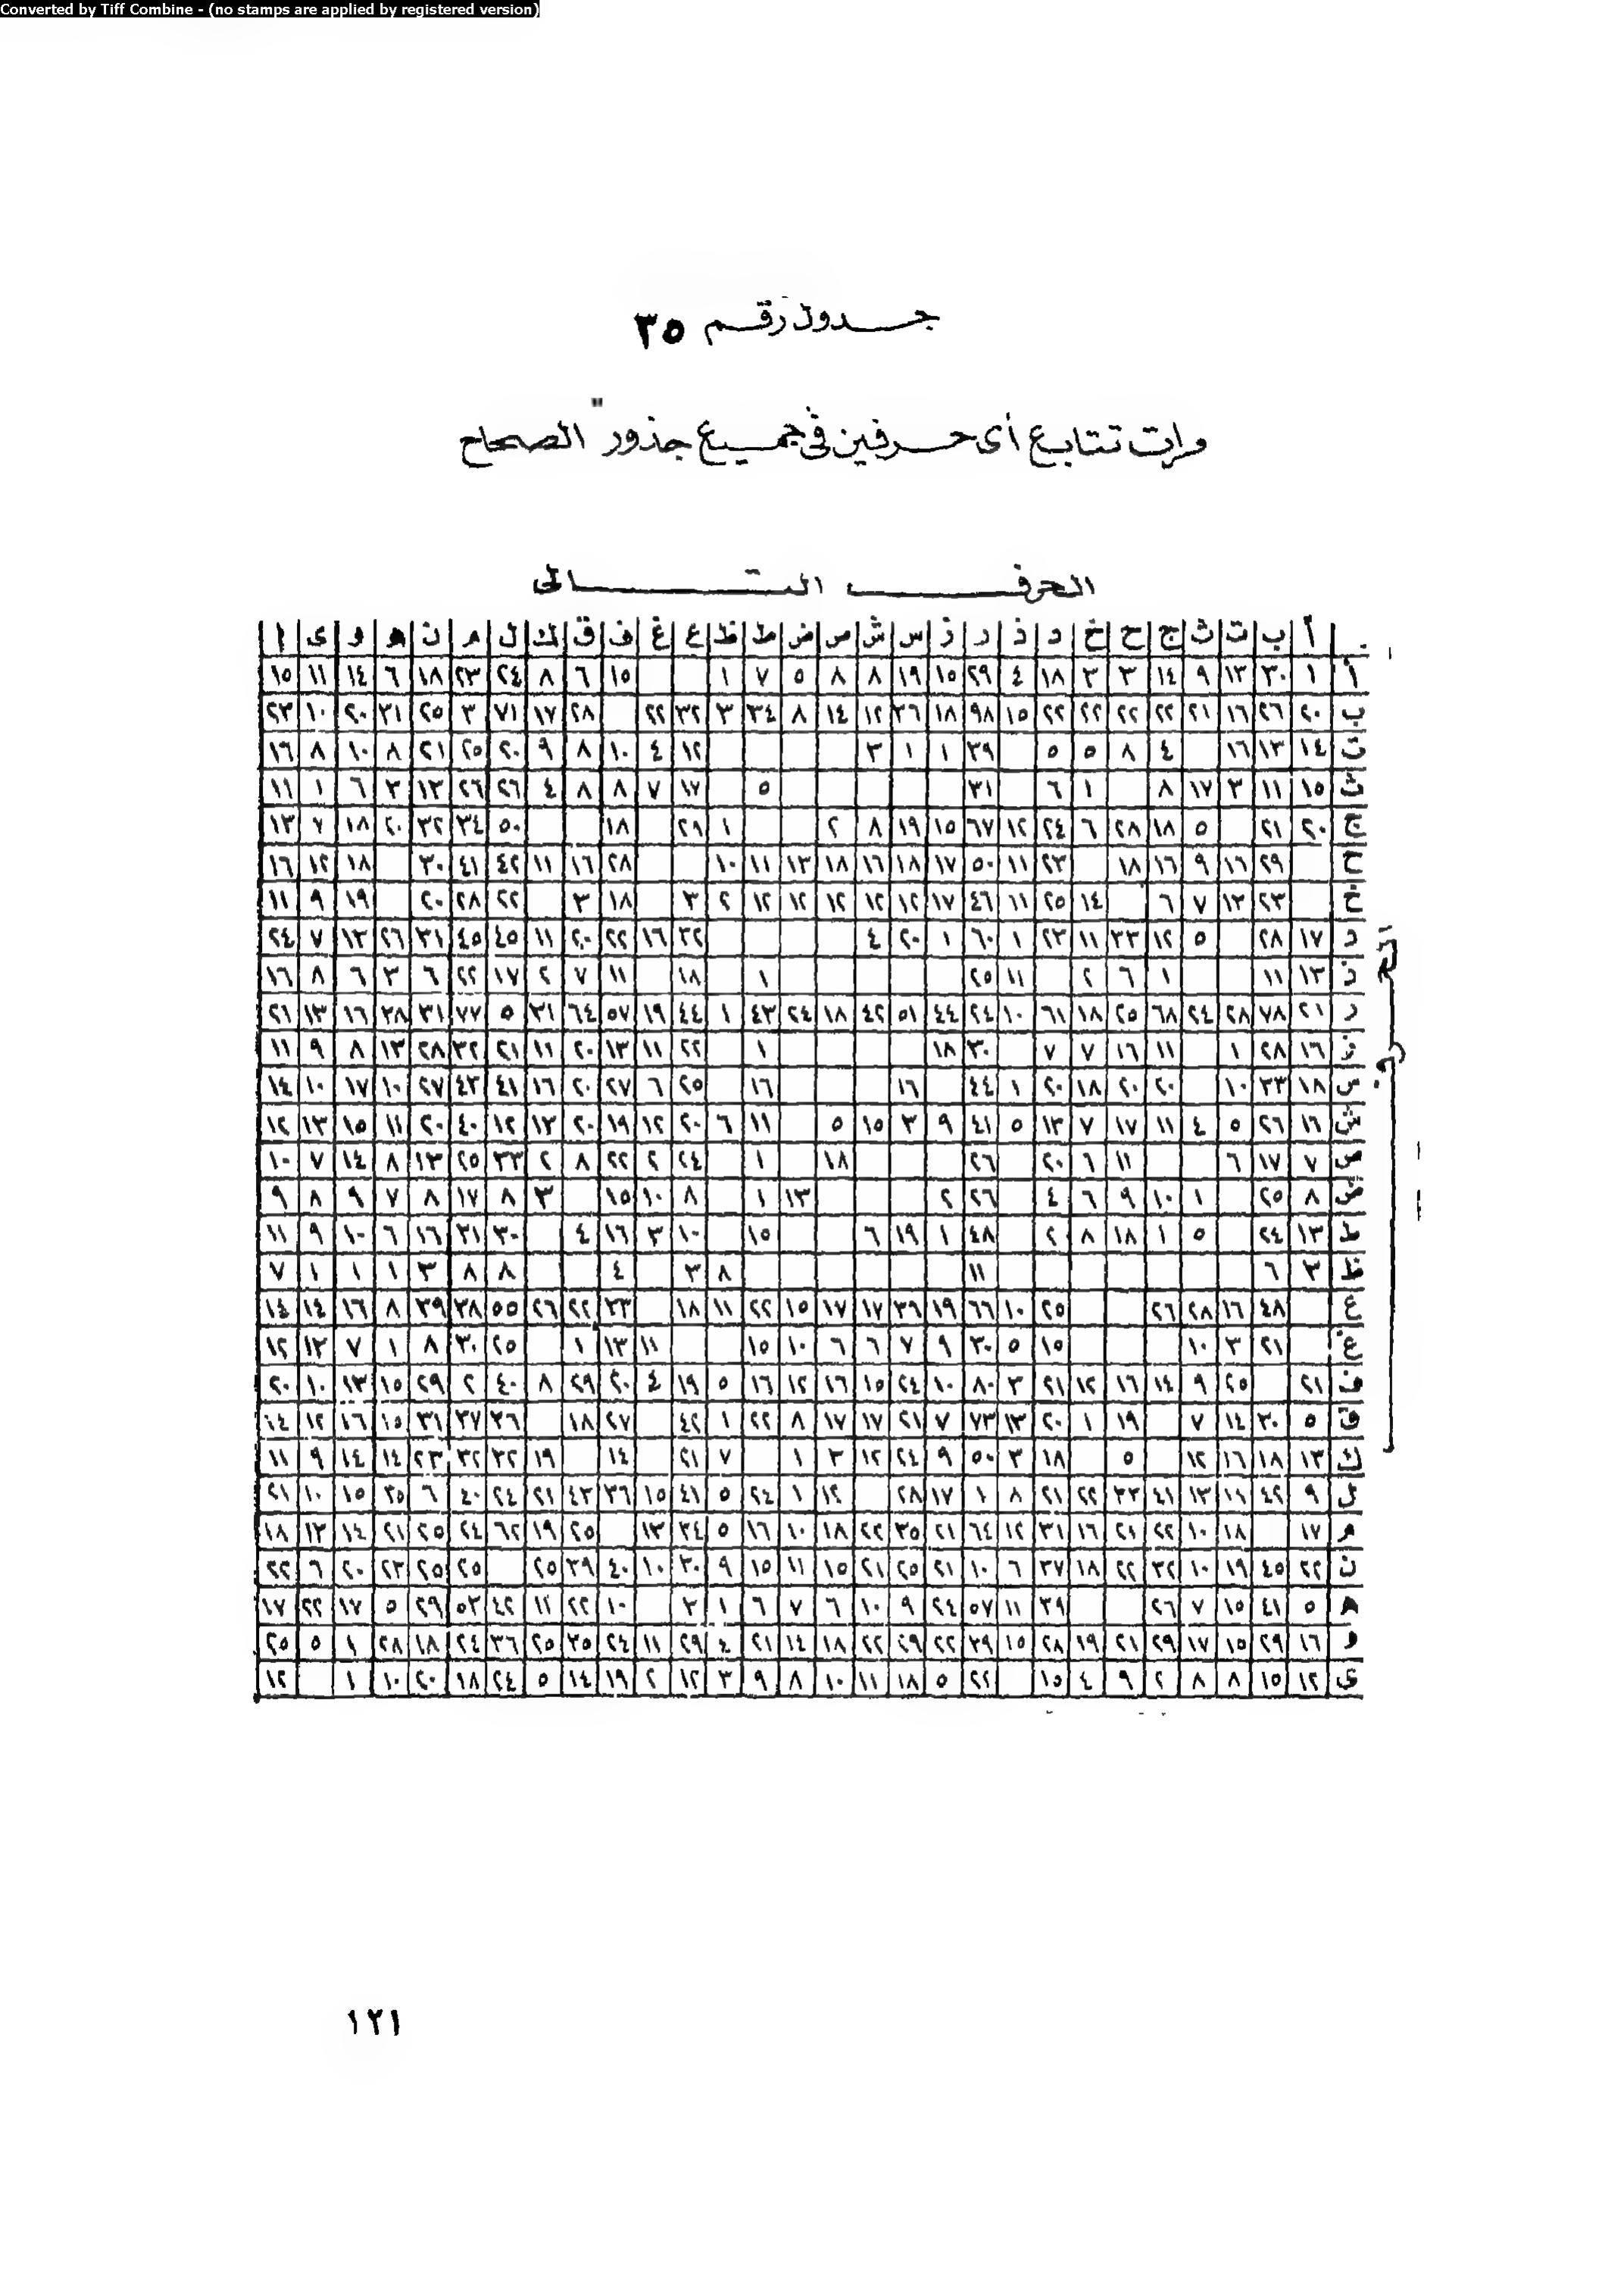 Converted by Tiff Combine - (no stamps are applied by registered version)
جدول رقم ٣٥
مرات تتابع أى حرفين فى جميع جذور "الصحاح
الحرف التالى
أ ب ت ث ج ح خ د ذ ر ز س ش ص ض ط ظ ع غ ف ق ك ل م ن ه و ى ا
أ ١ ٣٠ ١٣ ٩ ١٤ ٣ ٣ ١٨ ٤ ٢٩ ١٥ ١٩ ٨ ٨ ٥ ٧ ١ ١٥ ٦ ٨ ٢٤ ٢٣ ١٨ ٦ ١٤ ١١ ١٥
ب ٢٠ ٢٦ ١٦ ٢١ ٢٢ ٢٢ ٢٢ ٢٢ ١٥ ٩٨ ١٨ ٢٦ ١٢ ١٤ ٨ ٣٤ ٣ ٣٢ ٢٢ ٢٨ ١٧ ٧١ ٣ ٢٥ ٢١ ٢٠ ١٠ ٢٣
ت ١٤ ١٣ ١٦ ٤ ٨ ٥ ٥ ٣٩ ١ ١ ٣ ١٢ ٤ ١٠ ٨ ٩ ٢٠ ٢٥ ٢١ ٨ ١٠ ٨ ١٦
ث ١٥ ١١ ٣ ١٧ ٨ ١ ٦ ٣١ ٥ ١٧ ٧ ٨ ٨ ٤ ٢٦ ٢٦ ١٣ ٣ ٦ ١ ١١
ج ٢٠ ٢١ ٥ ١٨ ٢٨ ٦ ٢٤ ١٢ ٦٧ ١٥ ١٩ ٨ ٢ ١ ٢٨ ١٨ ٥٠ ٣٤ ٣٢ ٢٠ ١٨ ٧ ١٣
ح ٢٩ ١٦ ٩ ١٦ ١٨ ٢٣ ١١ ٥٠ ١٧ ١٨ ١٦ ١٨ ١٣ ١١ ١٠ ٢٨ ١٦ ١١ ٤٢ ٤١ ٣٠ ١٨ ١٢ ١٦
خ ٢٣ ١٢ ٧ ٦ ١٤ ٢٥ ١١ ٤٦ ١٧ ١٢ ١٢ ١٢ ١٢ ١٢ ٢ ٣ ١٨ ٣ ٢٢ ٢٨ ٢٠ ١٩ ٩ ١١
د ١٧ ٢٨ ٥ ١٢ ٢٣ ١١ ٢٣ ١ ٦٠ ١ ٢٠ ٤ ٣٢ ١٦ ٢٢ ٢٠ ١١ ٤٥ ٤٥ ٣١ ٢٦ ١٣ ٧ ٢٤
ذ ١٣ ١١ ١ ٦ ٢ ١١ ٢٥ ١ ١٨ ١١ ٧ ٢ ١٧ ٢٢ ٦ ٣ ٦ ٨ ١٦
ر ٢١ ٧٨ ٢٨ ٢٤ ٦٨ ٢٥ ١٨ ٦١ ١٠ ٢٤ ٤٤ ٥١ ٤٢ ١٨ ٢٤ ٤٣ ١ ٤٤ ١٩ ٥٧ ٦٤ ٣١ ٥ ٧٧ ٣١ ٢٨ ١٦ ١٣ ٢١
ز ١٦ ٢٨ ١ ١١ ١٦ ٧ ٧ ٣٠ ١٨ ١ ٢٢ ١١ ١٣ ٢٠ ١١ ٢١ ٣٢ ٢٨ ١٣ ٨ ٩ ١١
س ١٨ ٣٣ ١٠ ٢٠ ٢٠ ١٨ ٢٠ ١ ٤٤ ١٦ ١٦ ٢٥ ٦ ٢٧ ٢٠ ١٦ ٤١ ٤٢ ٢٧ ١٠ ١٧ ١٠ ١٤
ش ١٦ ٢٦ ٥ ٤ ١١ ١٧ ٧ ١٣ ٥ ٤١ ٩ ٣ ١٥ ٥ ١١ ٦ ٢٠ ١٢ ١٩ ٢٠ ١٣ ١٢ ٤٠ ٢٠ ١١ ١٥ ١٣ ١٢
ص ٧ ١٧ ٦ ١١ ٦ ٢٠ ٢٦ ١٨ ١ ٢٤ ٢ ٢٢ ٨ ٢ ٣٣ ٢٥ ١٣ ٨ ١٤ ٧ ١٠
ض ٨ ٢٥ ١ ١٠ ٩ ٦ ٤ ٢٦ ٢ ١٣ ١ ٨ ١٠ ١٥ ٣ ٨ ١٧ ٨ ٧ ٩ ٨ ٩
ط ١٣ ٢٤ ٥ ١ ١٨ ٨ ٢ ٤٨ ١ ١٩ ٦ ١٥ ١٠ ٣ ١٦ ٤ ٣٠ ٣١ ١٦ ٦ ١٠ ٩ ١١
ظ ٣ ٦ ١١ ٨ ٣ ٤ ٨ ٨ ٣ ١ ١ ١ ٧
ع ٤٨ ١٦ ٢٨ ٢٦ ٢٥ ١٠ ٦٦ ١٩ ٣٦ ١٧ ١٧ ١٥ ٢٢ ١١ ١٨ ٢٣ ٢٢ ٢٦ ٥٥ ٣٨ ٣٩ ٨ ١٦ ١٤ ١٤
غ ٢١ ٣ ١٠ ١٥ ٥ ٣٠ ٩ ٧ ٦ ٦ ١٠ ١٥ ١١ ١٣ ١ ٢٥ ٣٠ ٨ ١ ٧ ١٣ ١٢
ف ٢١ ٢٥ ٩ ١٤ ١٦ ١٢ ٢١ ٣ ٨٠ ١٠ ٢٤ ١٥ ١٦ ١٢ ١٦ ٥ ١٩ ٤ ٢٠ ٢٩ ٨ ٤٠ ٢ ٢٩ ١٥ ١٣ ١٠ ٢٠
ق ٥ ٣٠ ١٤ ٧ ١٩ ١ ٢٠ ١٣ ٧٣ ٧ ٢١ ١٧ ١٧ ٨ ٢٢ ١ ٤٢ ٢٧ ١٨ ٣٦ ٣٧ ٣١ ١٥ ١٦ ١٢ ١٤
ك ١٣ ١٨ ١٦ ١٢ ٥ ١٨ ٣ ٥٠ ٩ ٢٤ ١٢ ٣ ١ ٧ ٢١ ١٤ ١٩ ٣٢ ٣٢ ٢٣ ١٤ ١٤ ٩ ١١
ل ٩ ٤٢ ١١ ١٣ ٤١ ٣٣ ٢٢ ٢١ ٨ ١ ١٧ ٢٨ ١٢ ١ ٢٤ ٥ ٤١ ١٥ ٣٦ ٤٣ ٢١ ٢٤ ٤٠ ٦ ٢٥ ١٥ ١٠ ٢١
م ١٧ ١٨ ١٠ ٢٢ ٢١ ١٦ ٣١ ١٢ ٦٤ ٢١ ٣٥ ٢٢ ١٨ ١٠ ١٦ ٥ ٣٤ ١٣ ٢٥ ١٩ ٦٢ ٢٤ ٢٥ ٢١ ١٤ ١٣ ١٨
ن ٢٢ ٤٥ ١٩ ١٠ ٣٢ ٢٢ ١٨ ٣٧ ٦ ١٠ ٢١ ٢٥ ٢١ ١٥ ١١ ١٥ ٩ ٣٠ ١٠ ٤٠ ٣٩ ٢٥ ٢٥ ٢٥ ٢٣ ٢٠ ٦ ٢٢
ه ٥ ٤١ ١٥ ٧ ٢٦ ٣٩ ١١ ٥٧ ٢٤ ٩ ١٠ ٦ ٧ ٦ ١ ٣ ١٠ ٢٢ ١١ ٤٢ ٥٣ ٢٩ ٥ ١٧ ٢٢ ١٧
و ١٦ ٢٩ ١٥ ١٧ ٢٩ ٢١ ١٩ ٢٨ ١٥ ٣٩ ٢٢ ٢٩ ٢٢ ١٨ ١٤ ٢١ ٤ ٢٩ ١١ ٢٤ ٣٥ ٢٥ ٣٦ ٢٤ ١٨ ٢٨ ١ ٥ ٢٥
ى ١٢ ١٥ ٨ ٨ ٢ ٩ ٤ ١٥ ٢٢ ٥ ١٨ ١١ ١٠ ٨ ٩ ٣ ١٢ ٢ ١٩ ١٤ ٥ ٢٤ ١٨ ٢٠ ١٠ ١ ١٢
١٢١